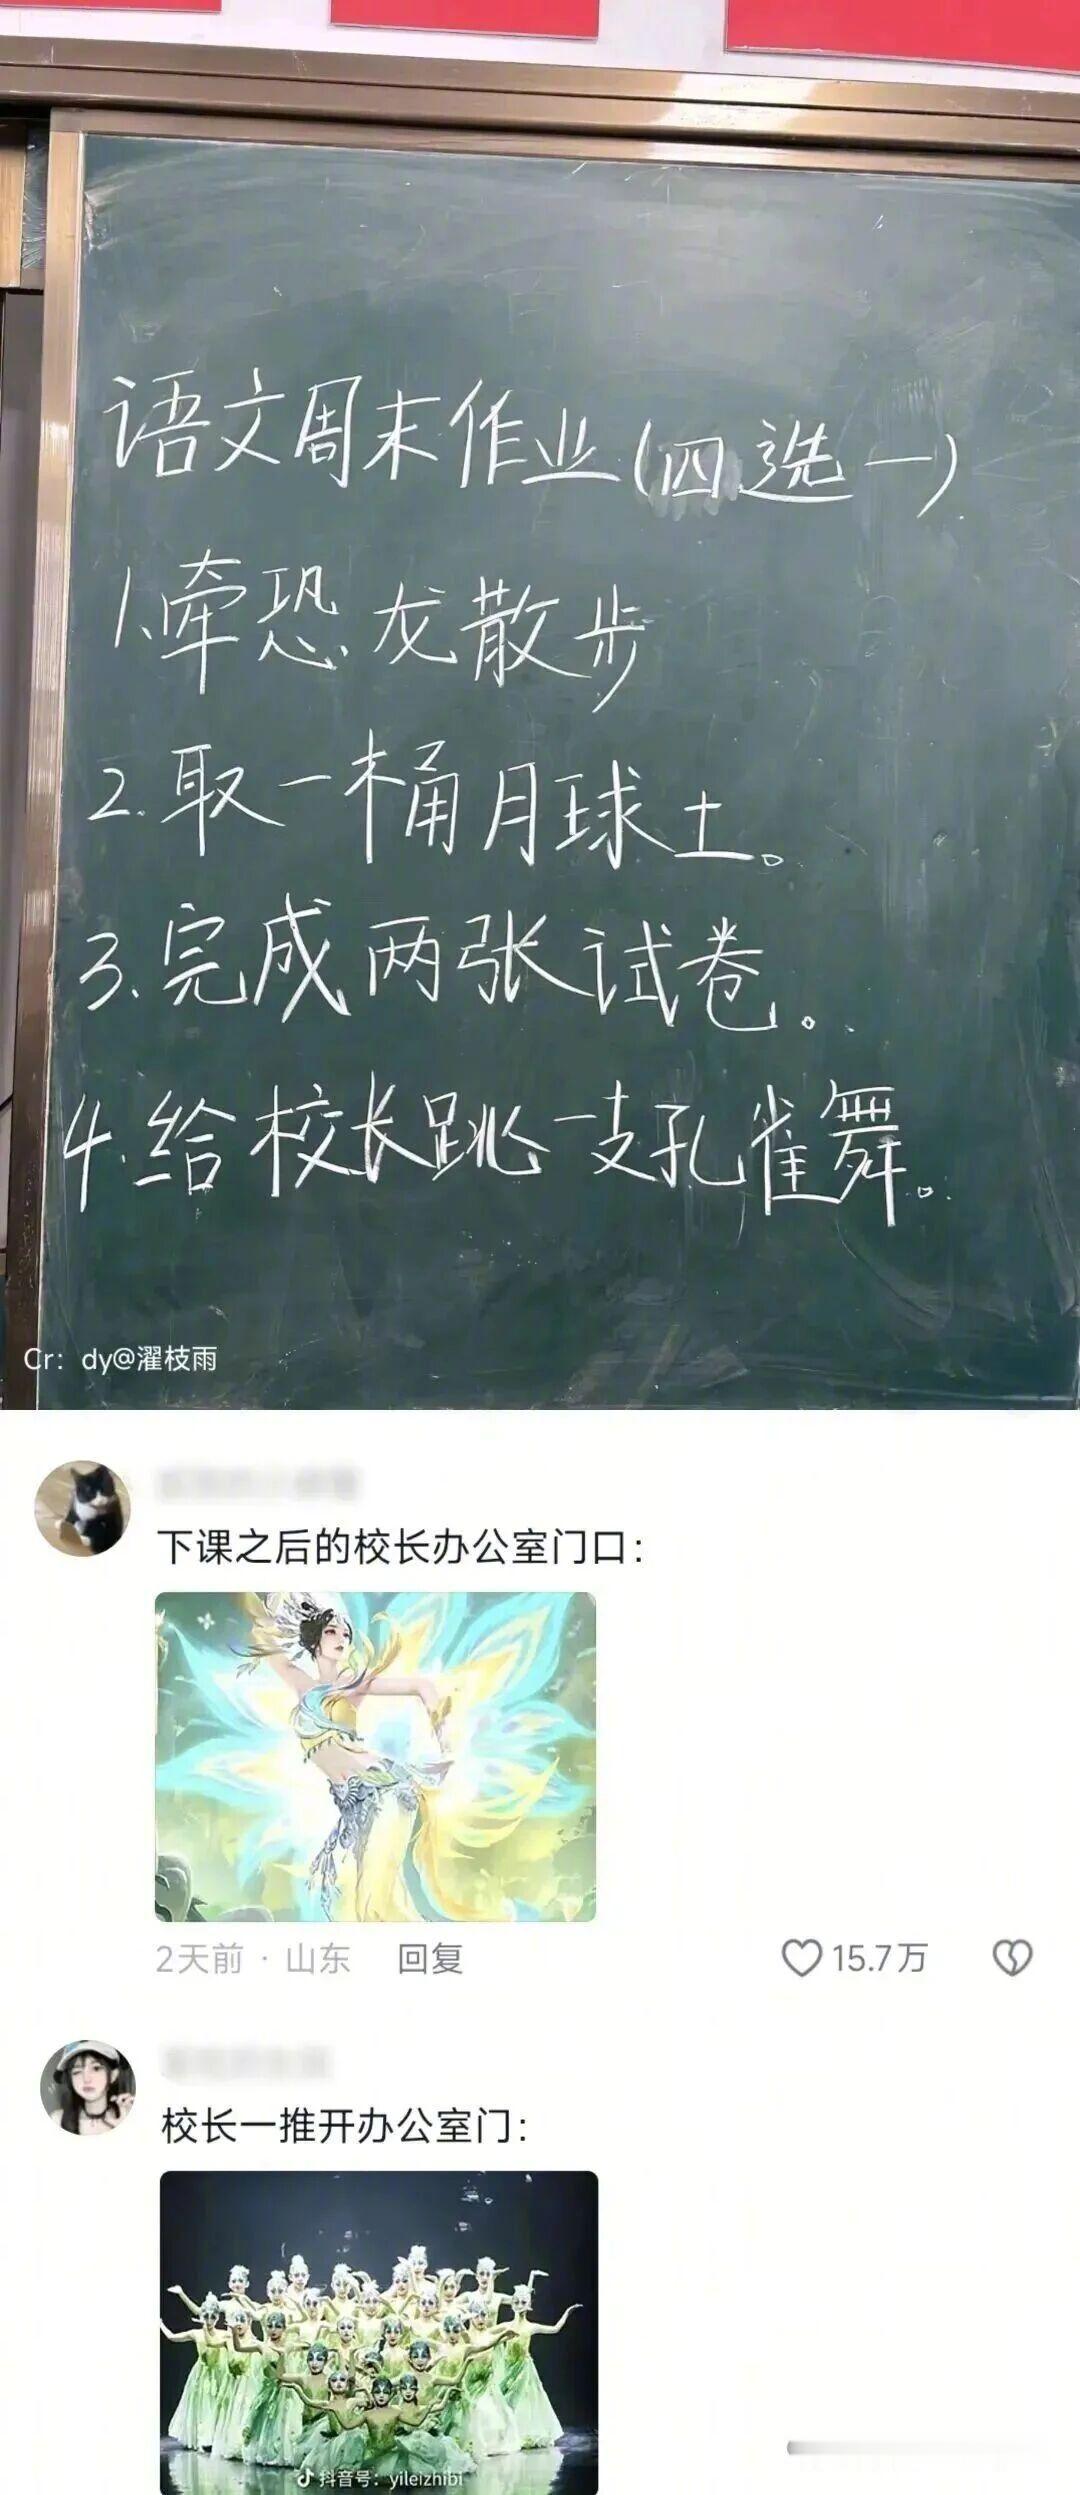 语文周末作业(四选一)
1.牵恐龙散步
2.取一桶月球土。
3.完成两张试卷。
4.给校长跳一支孔雀舞。
Cr：dy@濯枝雨
下课之后的校长办公室门口：
2天前 · 山东 回复 15.7万
校长一推开办公室门：
抖音号：yileizhibi